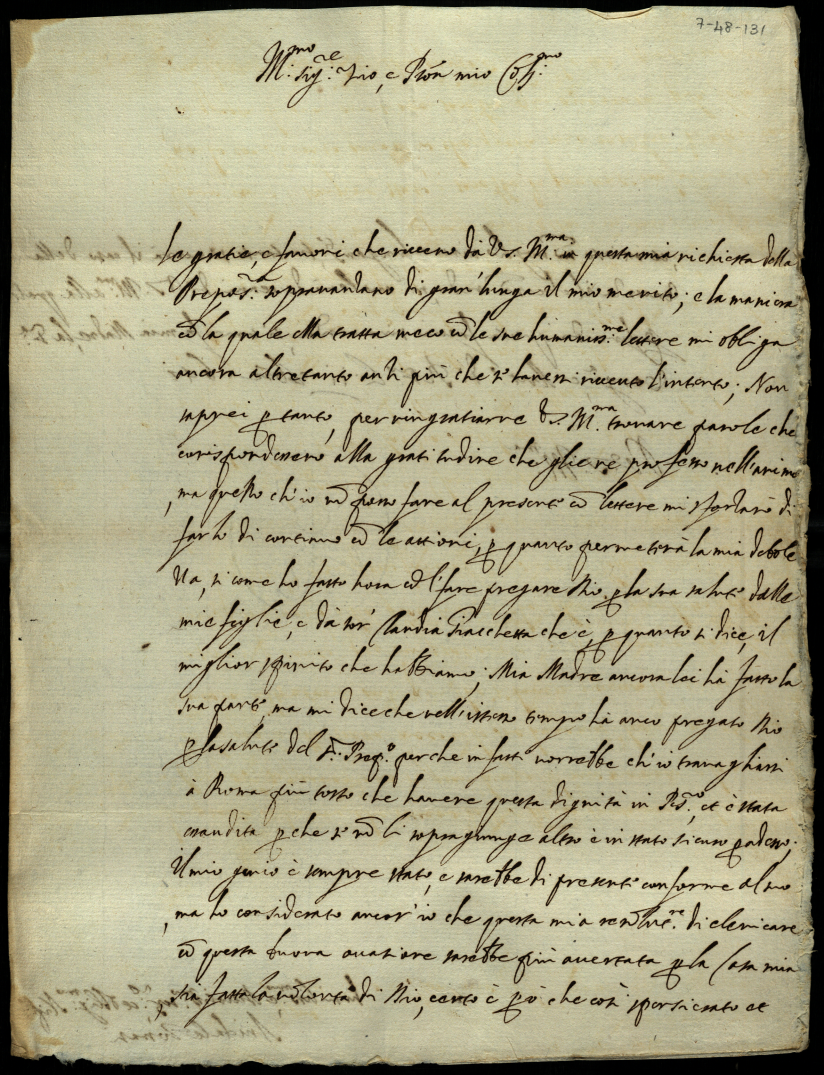 7-48-131
M.mo sig.re Zio, e Pron mio Coll.mo
Le gratie, e favori che ricevo dà V.S. M.ma in questa mia richiesta della
Prepos.ra sopravanzano di gran' lunga il mio merito; e la maniera
cō la quale ella tratta meco cō le sue humaniss.me lettere mi obliga
ancora altretanto anzi più che s'havessi ricevuto l'intento; Non
saprei p tanto, per ringratiarne V.S. M.ma trovare parole che
corispondessero alla gratitudine che gliene professo nell'animo
, ma quello ch'io nō posso fare al presente cō lettere mi sforzarò di
farlo di continuo cō le attioni, p quanto permeterà la mia debole
, si come ho fatto hora cō l'fare pregare Dio p la sua salute dalle
mie figlie, e dà sor' Claudia Giacchetta che è, p quanto si dice, il
miglior spirito che habbiamo; Mia Madre ancora lei hà fatto la
sua parte, ma mi dice che nell'istesso tempo hà anco pregato Dio
p la salute del S.r Prep.o perche in fatti vorrebbe ch'io travagliassi
à Roma più tosto che havere questa dignità in , et è stata
esaudita p che se nō li sopragiunge altro è in stato sicuro p adesso;
Il mio genio è sempre stato, e sarebbe di presente conforme al suo
, ma ho considerato ancor'io che questa mia resolut.ne di clericare
cō questa buona ocasione sarebbe più acertata p la Casa mia
sia fatta la volontà di Dio, certo è p ò che così spensierato et